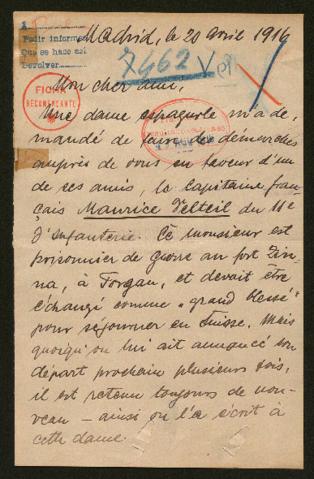 1
Pedir informes
Que se hace así
Devolver
Madrid, le 20 avril 1916
7462 V
FICHA
RECONFRONTANTE
Mon cher ami,
Une dame espagnole m'a de,
mandé de faire des démarches
auprès de vous en faveur d'un
de ses amis, le Capitaine fran,
çais Maurice Delteil du 11e
d'Infanterie. Ce monsieur est
prisonnier de guerre au fort Zin-
na, à Torgau, et devait être
échangé comme "grand blessé"
pour séjourner en Suisse. Mais
quoiqu'on lui ait annoncé son
départ prochain plusieurs fois,
il est retenu toujours de nou-
veau – ainsi on l'a écrit à
cette dame.